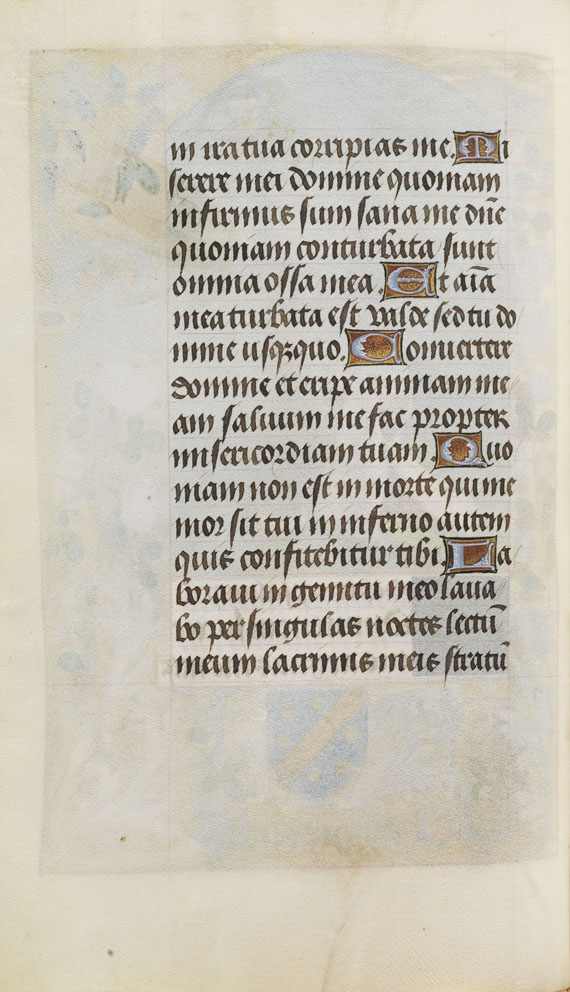 in ira tua corripias me. Mi
serere mei domine quoniam
infirmus sum sana me dn̄e
quoniam conturbata sunt
omnia ossa mea. Et aīa
mea turbata est valde sed tu do
mine usqꝫquo. Conuertere
domine et eripe animam me
am saluum me fac propter
misericordiam tuam. Quo
niam non est in morte qui me
mor sit tui in inferno autem
quis confitebitur tibi. La
boraui in gemitu meo laua
bo per singulas noctes lectū
meum lacrimis meis stratū